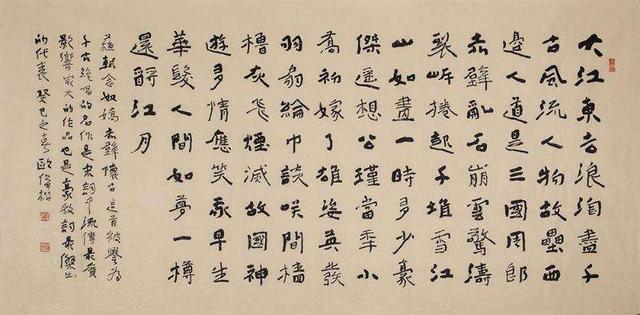 大江東去浪淘盡千
古風流人物故壘西
邊人道是三國周郎
赤壁亂石崩雲驚濤
裂岸捲起千堆雪江
山如畫一時多少豪
傑遥想公瑾當秊小
喬初嫁了雄姿英發
羽扇綸巾談咲間檣
櫓灰飛煙滅故國神
遊多情應笑我早生
華髮人間如夢一樽
還酹江月
蘇軾念奴嬌赤壁懷古這首被譽為
千古絶唱的名作是宋詞中流傳最廣
影響最大的作品也是豪放詞最傑出
的代表 癸巳之春 歐